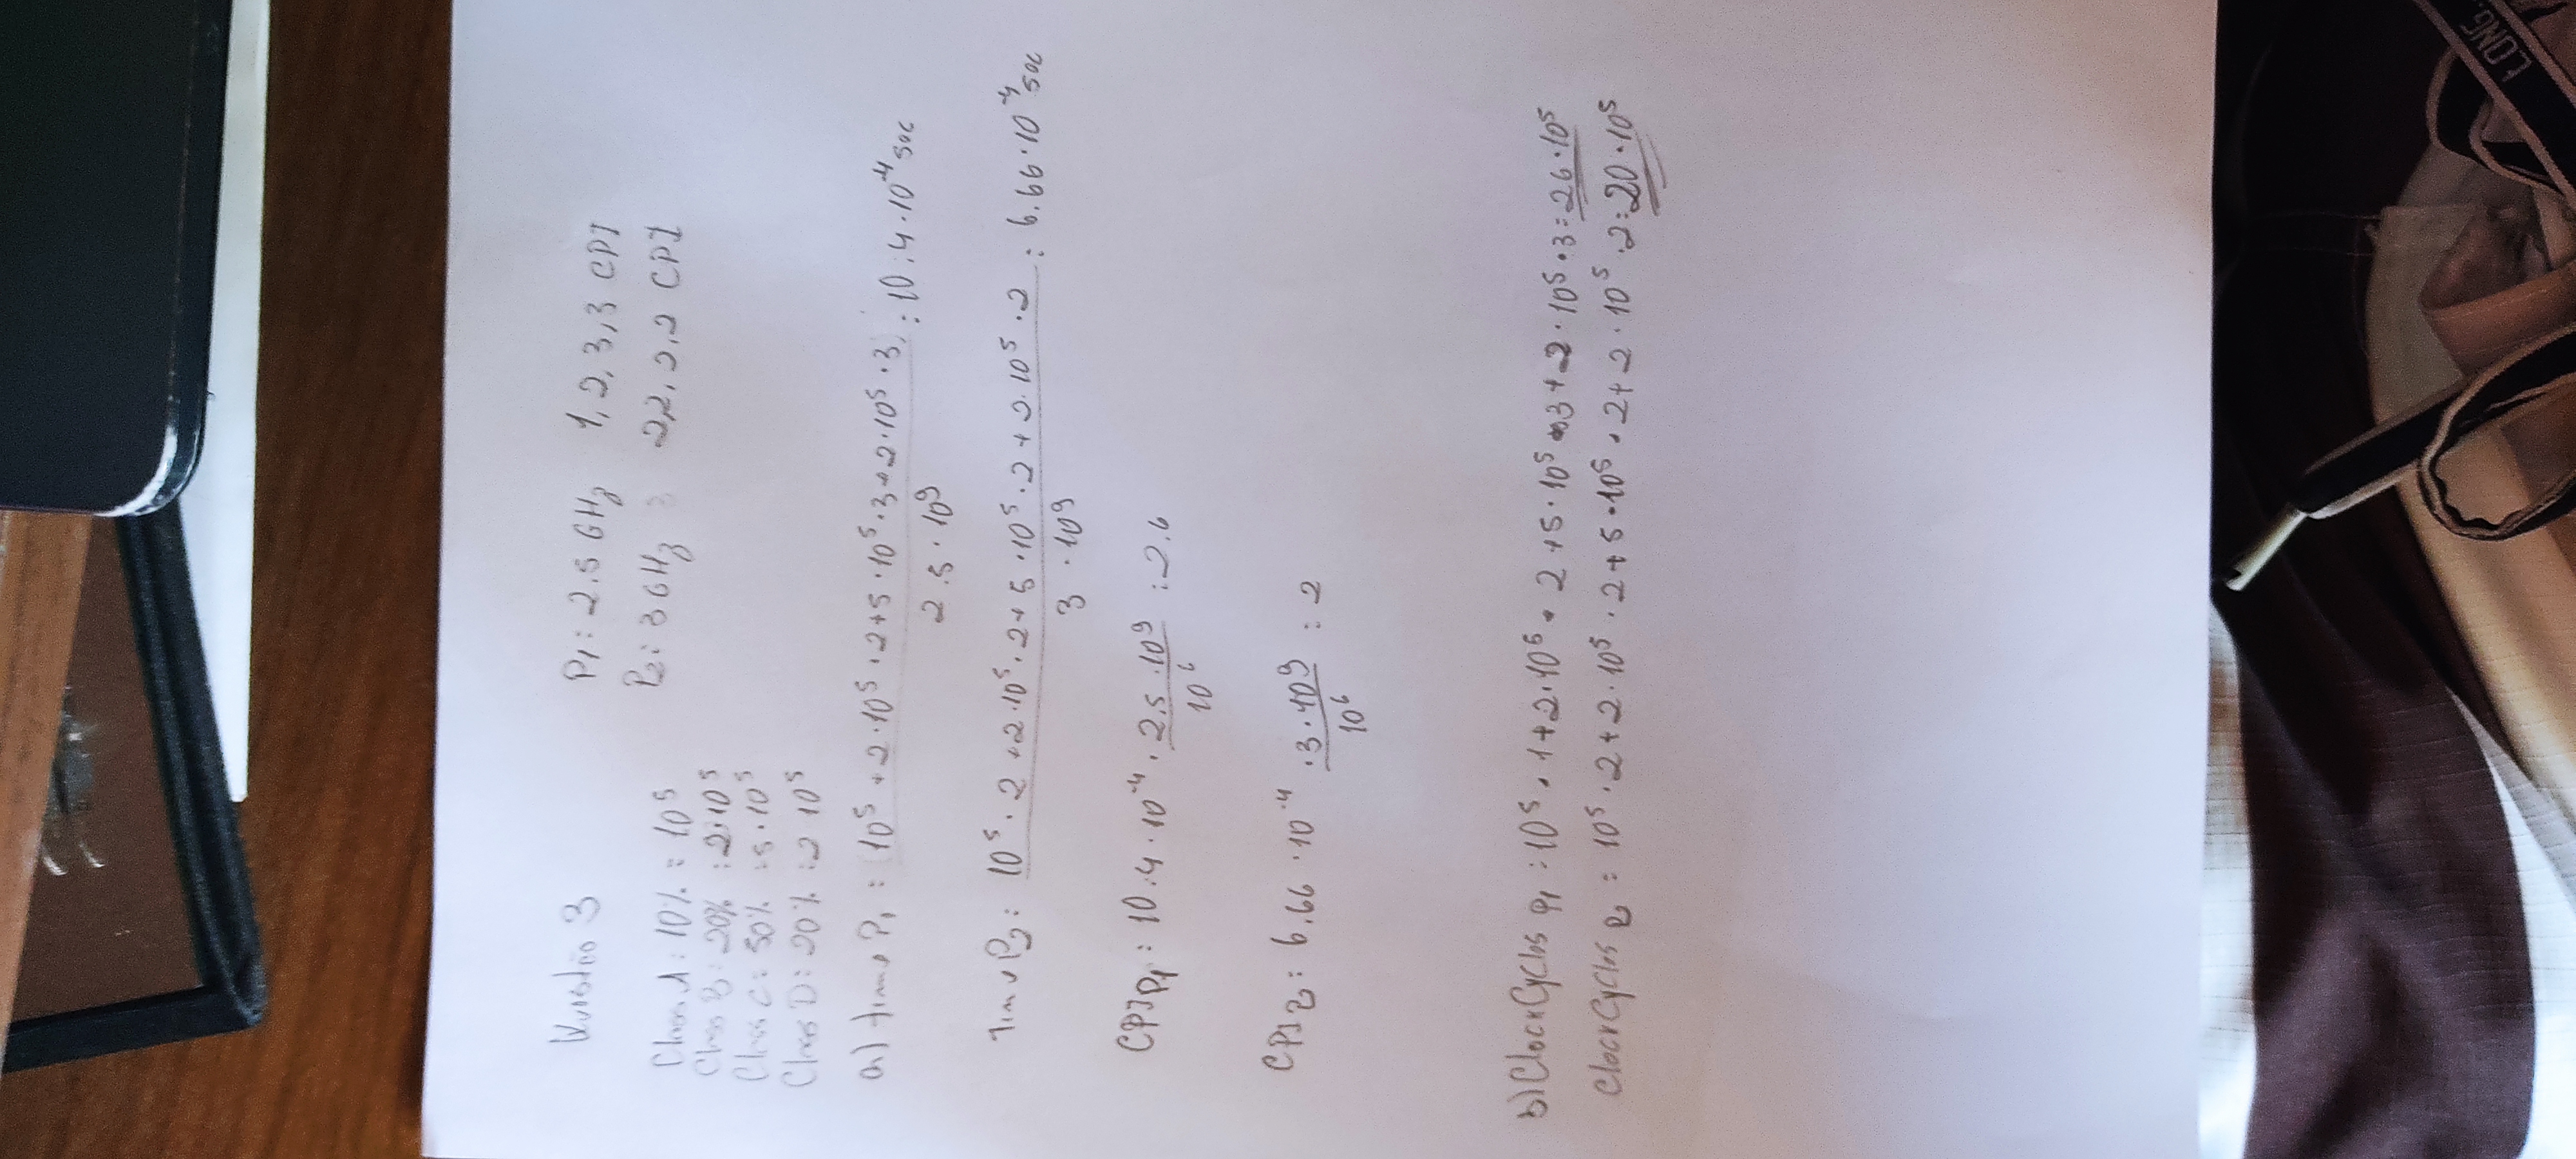 3
P1: 2.5 GHz 1, 2, 3, 3 CPI
P2: 3 GHz 2 2, 2, 2 CPI
Class A: 10% = 10^5
Class B: 20% : 2·10^5
Class C: 50% : 5·10^5
Class D: 20% : 2·10^5
a) time P1 : 10^5 + 2·10^5·2+5·10^5·3+2·10^5·3 : 10.4·10^-4 sec
2.5·10^9
Time P2: 10^5·2+2·10^5·2+5·10^5·2+2·10^5·2 : 6.66·10^-4 sec
3·10^9
CPI P1 : 10.4·10^-4 · 2.5·10^9 : 2.6
10^6
CPI 2 : 6.66·10^-4 · 3·10^9 : 2
10^6
b) Clock Cycles P1 : 10^5·1+2·10^5·2+5·10^5·3+2·10^5·3 = 26·10^5
Clock Cycles 2 = 10^5·2+2·10^5·2+5·10^5·2+2·10^5·2 = 20·10^5
LONG.